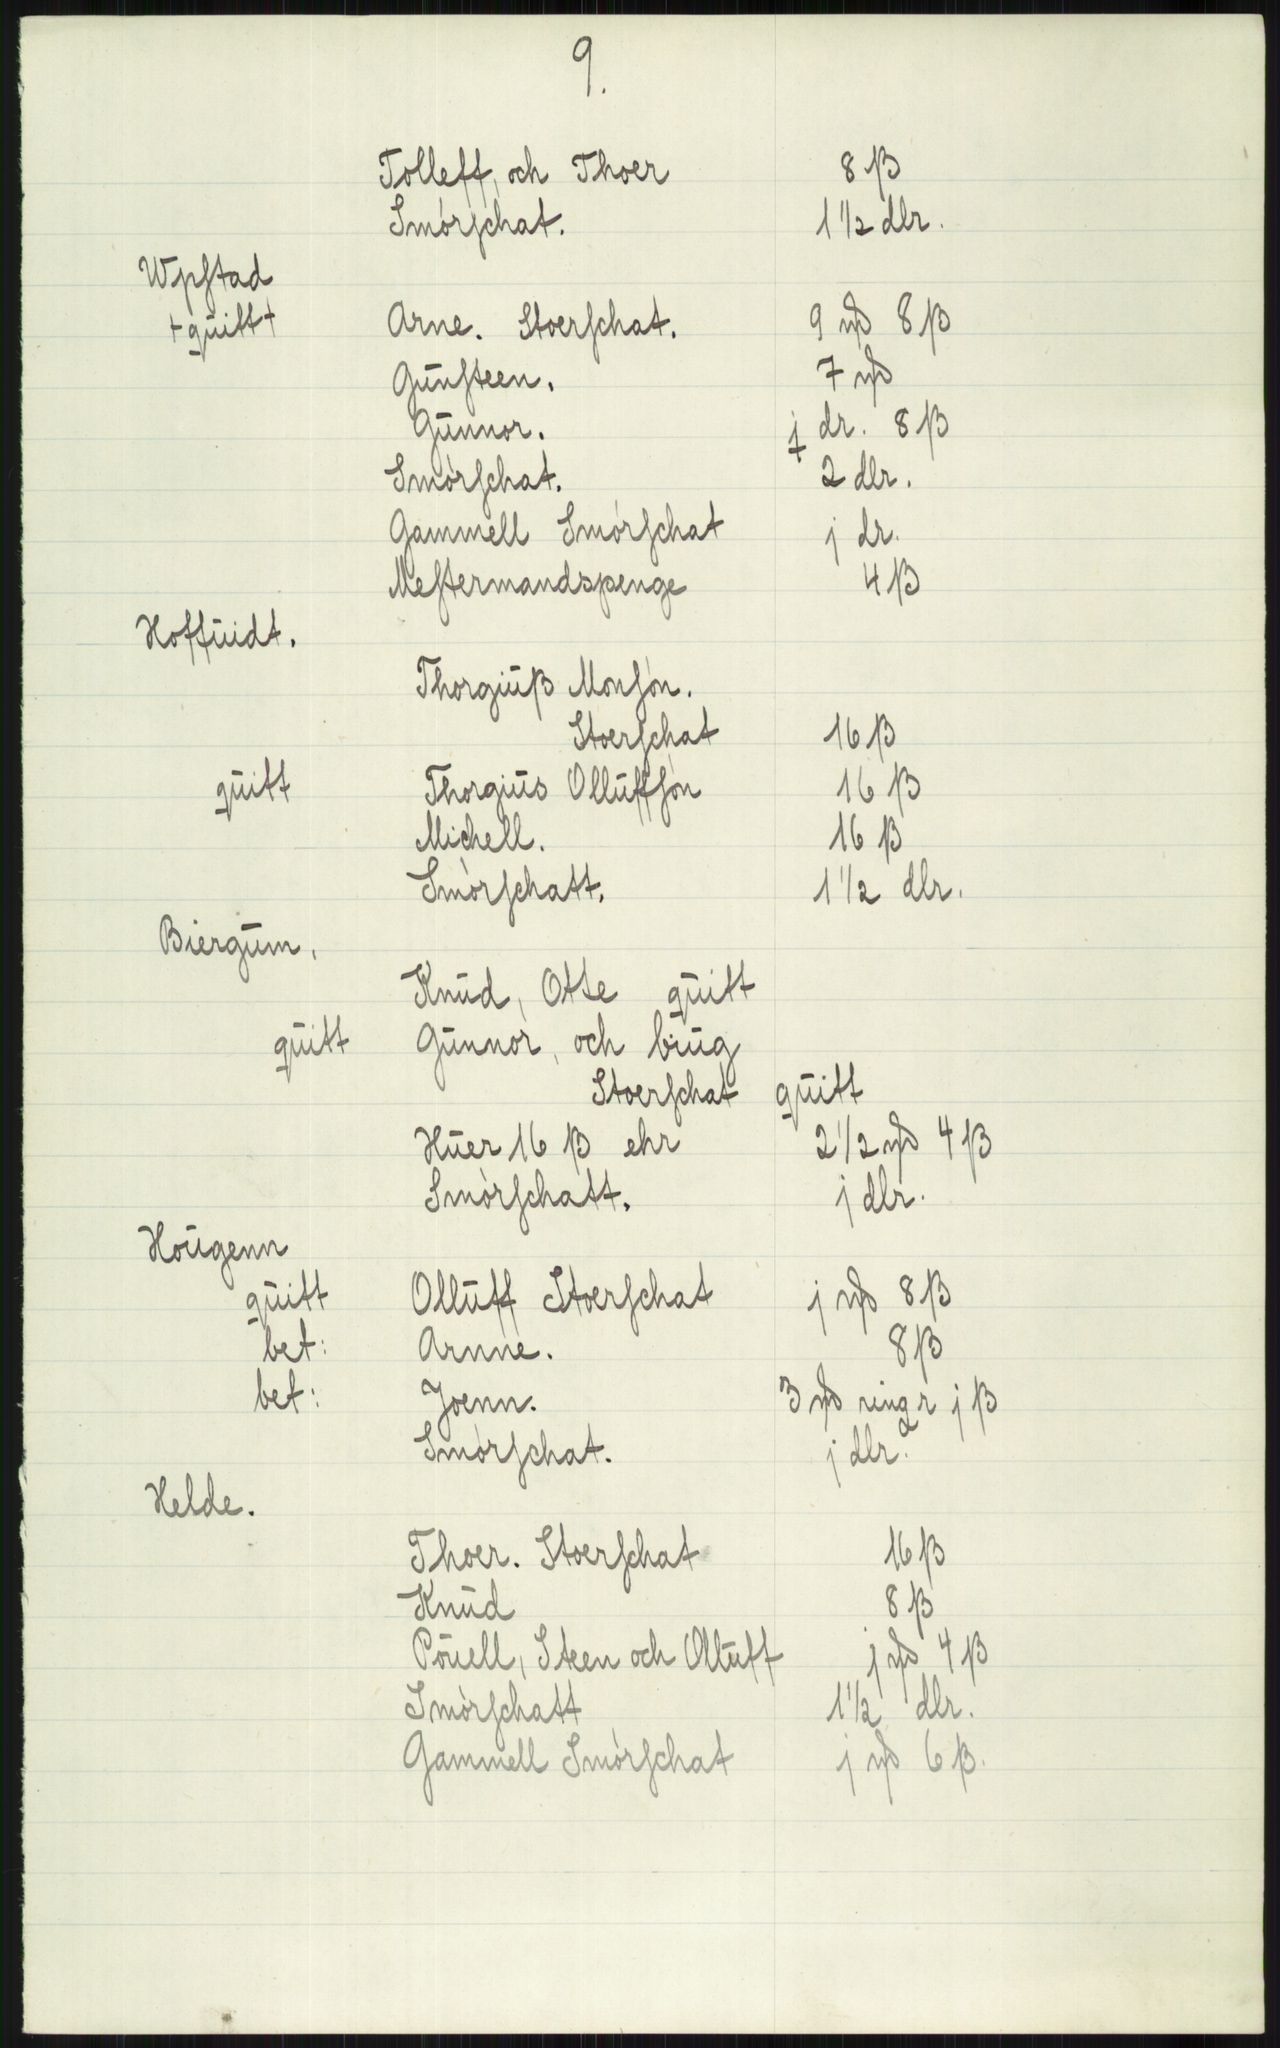 9.
Tolleff, och Thoer 8 β
Smörſchat. 1 1/2 dlr.
Wpſtad
+ quitt + Arne. Stoerſchat. 9 ɱ 8 β
Gunſteen. 7 ɱ
Gunnor. j dr. 8 β
Smörſchat. 2 dlr.
Gammell Smörſchat j dr.
Meſtermandspenge 4 β
Hoffuidt.
Thorgiuß Monſön.
Stoerſchat 16 β
quitt Thorgius Olluffſön 16 β
Michell. 16 β
Smörſchatt. 1 1/2 dlr.
Biergum.
Knud, Otte quitt
quitt Gunnor, och biug
Stoerſchat quitt
Huer 16 β ehr 2 1/2 ɱ 4 β
Smörſchatt. j dlr.
Hougenn
quitt Olluff Stoerſchat j ɱ 8 β
bet: Arnne. 8 β
bet: Joenn. 3 ɱ ringr j β
Smörſchat. j dlr.
Helde.
Thoer. Stoerſchat 16 β
Knud 8 β
Pouell, Steen och Olluff j ɱ 4 β
Smörſchatt 1 1/2 dlr.
Gammell Smörſchat j ɱ 6 β.